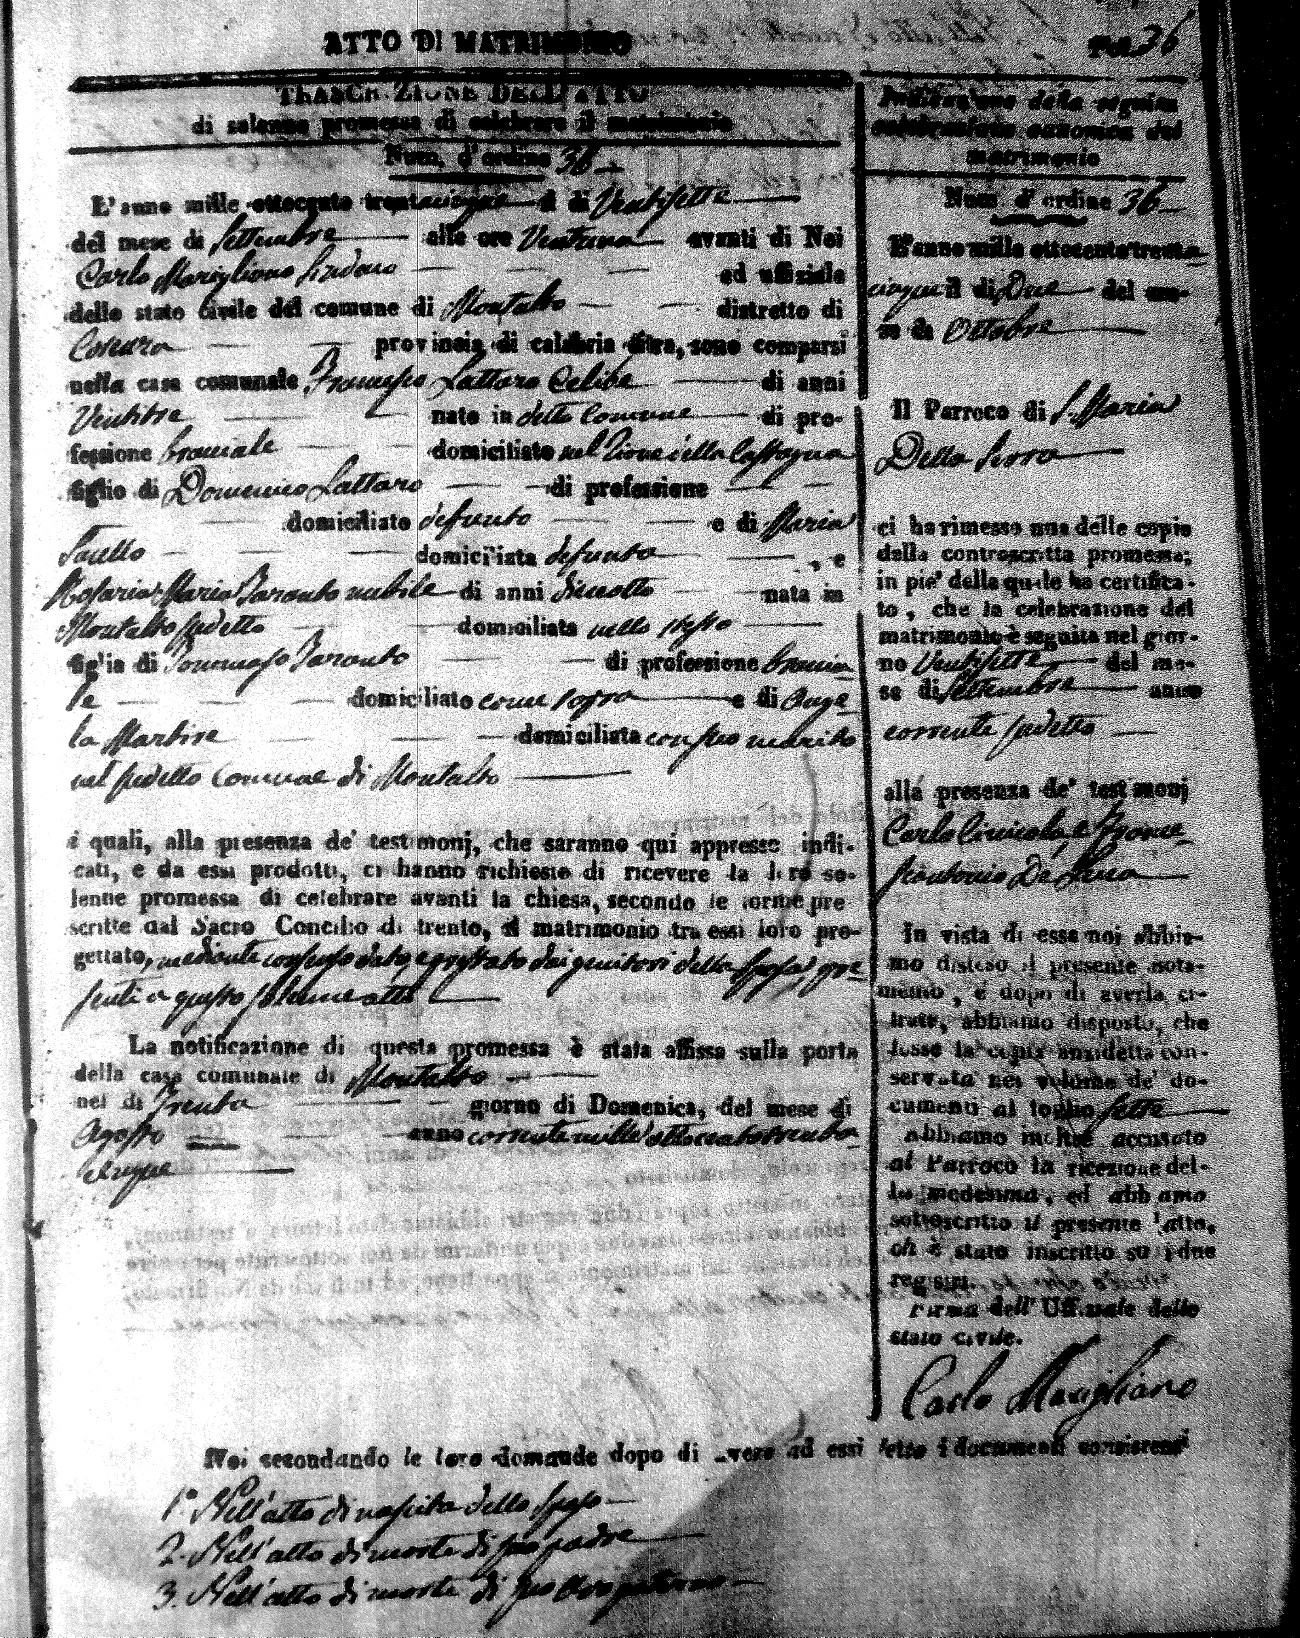 ATTO DI MATRIMONIO
36
TRASCRIZIONE DELL'ATTO
di solenne promessa di celebrare il matrimonio
Num. d'ordine 36
L'anno mille ottocento trentacinque il dì Ventisette
del mese di Settembre alle ore Ventuna avanti di Noi
Carlo Marigliano Sindaco ed uffiziale
dello stato civile del comune di Montalto distretto di
Cosenza provincia di calabria citra, sono comparsi
nella casa comunale Francesco Lattaro Celibe di anni
Ventitre nato in detto Comune di pro-
fessione bracciale domiciliato nel
figlio di Domenico Lattaro di professione
domiciliato defunto e di Maria
domiciliata defunta , e
Rosaria Maria Taranto nubile di anni dieciotto nata in
Montalto sudetto domiciliata nello stesso
figlia di Tommaso Taranto di professione braccia
le domiciliato come sopra e di Ange
la Martire domiciliata con suo marito
nel sudetto Comune di Montalto
i quali, alla presenza de' testimonj, che saranno qui appresso indi-
cati, e da essi prodotti, ci hanno richiesto di ricevere la loro so-
lenne promessa di celebrare avanti la chiesa, secondo le forme pre
scritte dal Sacro Concilio di trento, il matrimonio tra essi loro pro-
gettato, mediante consenso dato, e prestato dai genitori della Sposa, pre
senti a questo solenne atto
La notificazione di questa promessa è stata affissa sulla porta
della casa comunale di Montalto
nel dì Trenta giorno di Domenica, del mese di
Agosto anno corrente mille ottocento trenta
cinque
Indicazione della seguita
celebrazione canonica del
matrimonio
Num. d'ordine 36
L'anno mille ottocento trenta
cinque il dì Due del me-
se di Ottobre
Il Parroco di S. Maria
Della Serra
ci ha rimesso una delle copie
della controscritta promessa;
in piè della quale ha certifica-
to, che la celebrazione del
matrimonio è seguita nel gior-
no Ventisette del me-
se di Settembre anno
corrente sudetto
alla presenza de' testimonj
Carlo e France
scantonio De
In vista di essa noi abbia-
mo disteso il presente nota-
mento, e dopo di averla ci-
frata, abbiamo disposto, che
fosse la copia anzidetta con-
servata nel volume de' do-
cumenti al foglio sette
abbiamo inoltre accusato
al Parroco la ricezione del-
la medesima, ed abbiamo
sottoscritto il presente atto,
ch è stato inscritto su i due
registri.
Firma dell'Uffiziale dello
stato civile.
Carlo Marigliano
Noi secondando le loro domande dopo di avere ad essi letto i documenti consistenti
1.° Nell'atto di nascita dello Sposo
2. Nell'atto di morte di suo padre
3. Nell'atto di morte di suo Avo paterno